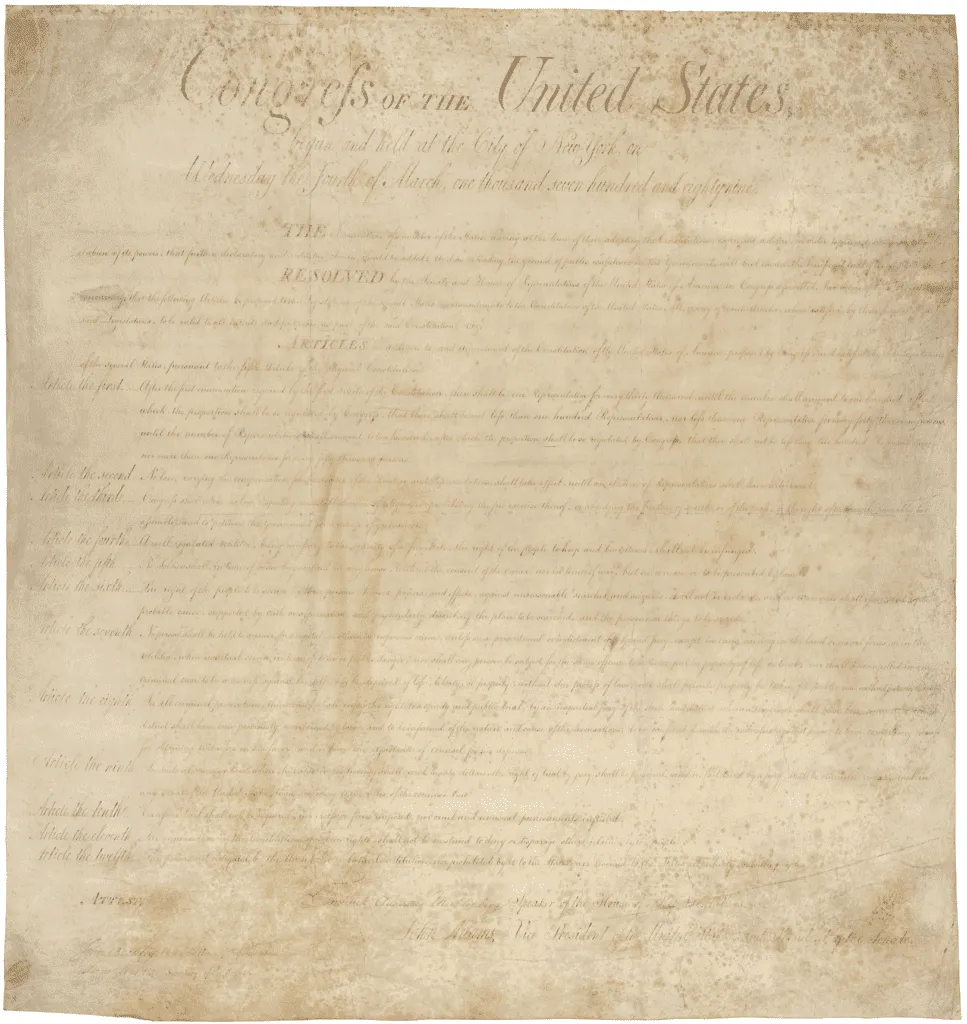 Congress of the United States,
begun and held at the City of New York, on
Wednesday the fourth of March, one thousand seven hundred and eighty nine.
THE of the States, having at the time of their adopting the Constitution, expressed a desire, in order to prevent
abuse of its powers, that further declaratory and restrictive clauses should be added: And as extending the ground of public confidence in the Government, will best
RESOLVED by the Senate and House of Representatives of the United States of America in Congress assembled, two
concurring, that the following Articles be proposed to the Legislatures of the several States, as amendments to the Constitution of the United States,
said Legislatures, to be valid to all intents and purposes, as part of the said Constitution; viz.
ARTICLES in addition to, and amendment of the Constitution of the United States of America, proposed by Congress, and ratified by the Legislatures
of the several States, pursuant to the fifth Article of the original Constitution.
Article the first... After the first enumeration required by the first Article of the Constitution, there shall be one Representative for every thirty thousand, until the number shall amount to one hundred, after
which, the proportion shall be so regulated by Congress, that there shall be not less than one hundred Representatives, nor less than one Representative for every forty thousand persons,
until the number of Representatives shall amount to two hundred, after which the proportion shall be so regulated by Congress, that there shall not be less than two hundred
nor more than one Representative for every fifty thousand persons.
Article the second... No law, varying the compensation for the services of the Senators and Representatives, shall take effect, until an election of Representatives shall have intervened.
Article the third... Congress shall make no law respecting an establishment of religion, or prohibiting the free exercise thereof; or abridging the freedom of speech, or of the press; or the right of the people peaceably to
assemble, and to petition the Government for a redress of grievances.
Article the fourth... A well regulated Militia, being necessary to the security of a free State, the right of the people to keep and bear Arms, shall not be infringed.
Article the fifth... No Soldier shall, in time of peace be quartered in any house, without the consent of the owner, nor in time of war, but in a manner to be prescribed by law.
Article the sixth... The right of the people to be secure in their persons, houses, papers, and effects, against unreasonable searches and seizures, shall not be violated, and no Warrants shall issue, but upon
probable cause, supported by oath or affirmation, and particularly describing the place to be searched, and the persons or things to be seized.
Article the seventh... No person shall be held to answer for a capital, or otherwise infamous crime, unless on a presentment or indictment of a Grand Jury, except in cases arising in the land or naval forces, or in the
Militia, when in actual service in time of War or public danger; nor shall any person be subject for the same offence to be twice put in jeopardy of life or limb; nor shall be compelled in any
criminal case to be a witness against himself, nor be deprived of life, liberty, or property, without due process of law; nor shall private property be taken for public use without just
Article the eighth... In all criminal prosecutions, the accused shall enjoy the right to a speedy and public trial, by an impartial jury of the State and district wherein the crime shall have been committed, which
district shall have been previously ascertained by law, and to be informed of the nature and cause of the accusation; to be confronted with the witnesses against him; to have compulsory process
for obtaining witnesses in his favor, and to have the assistance of counsel for his defence.
Article the ninth... In suits at common law, where the value in controversy shall exceed twenty dollars, the right of trial by jury shall be preserved, and no fact tried by a jury, shall be otherwise re-examined in
any Court of the United States, than according to the rules of the common law.
Article the tenth... Excessive bail shall not be required, nor excessive fines imposed, nor cruel and unusual punishments inflicted.
Article the eleventh... The enumeration in the Constitution, of certain rights, shall not be construed to deny or disparage others retained by the people.
Article the twelfth... The powers not delegated to the United States by the Constitution, nor prohibited by it to the States, are reserved to the States respectively, or to the people.
ATTEST,
Frederick Augustus Muhlenberg Speaker of the House of Representatives
John Adams, Vice President of the United States, and President of the Senate.